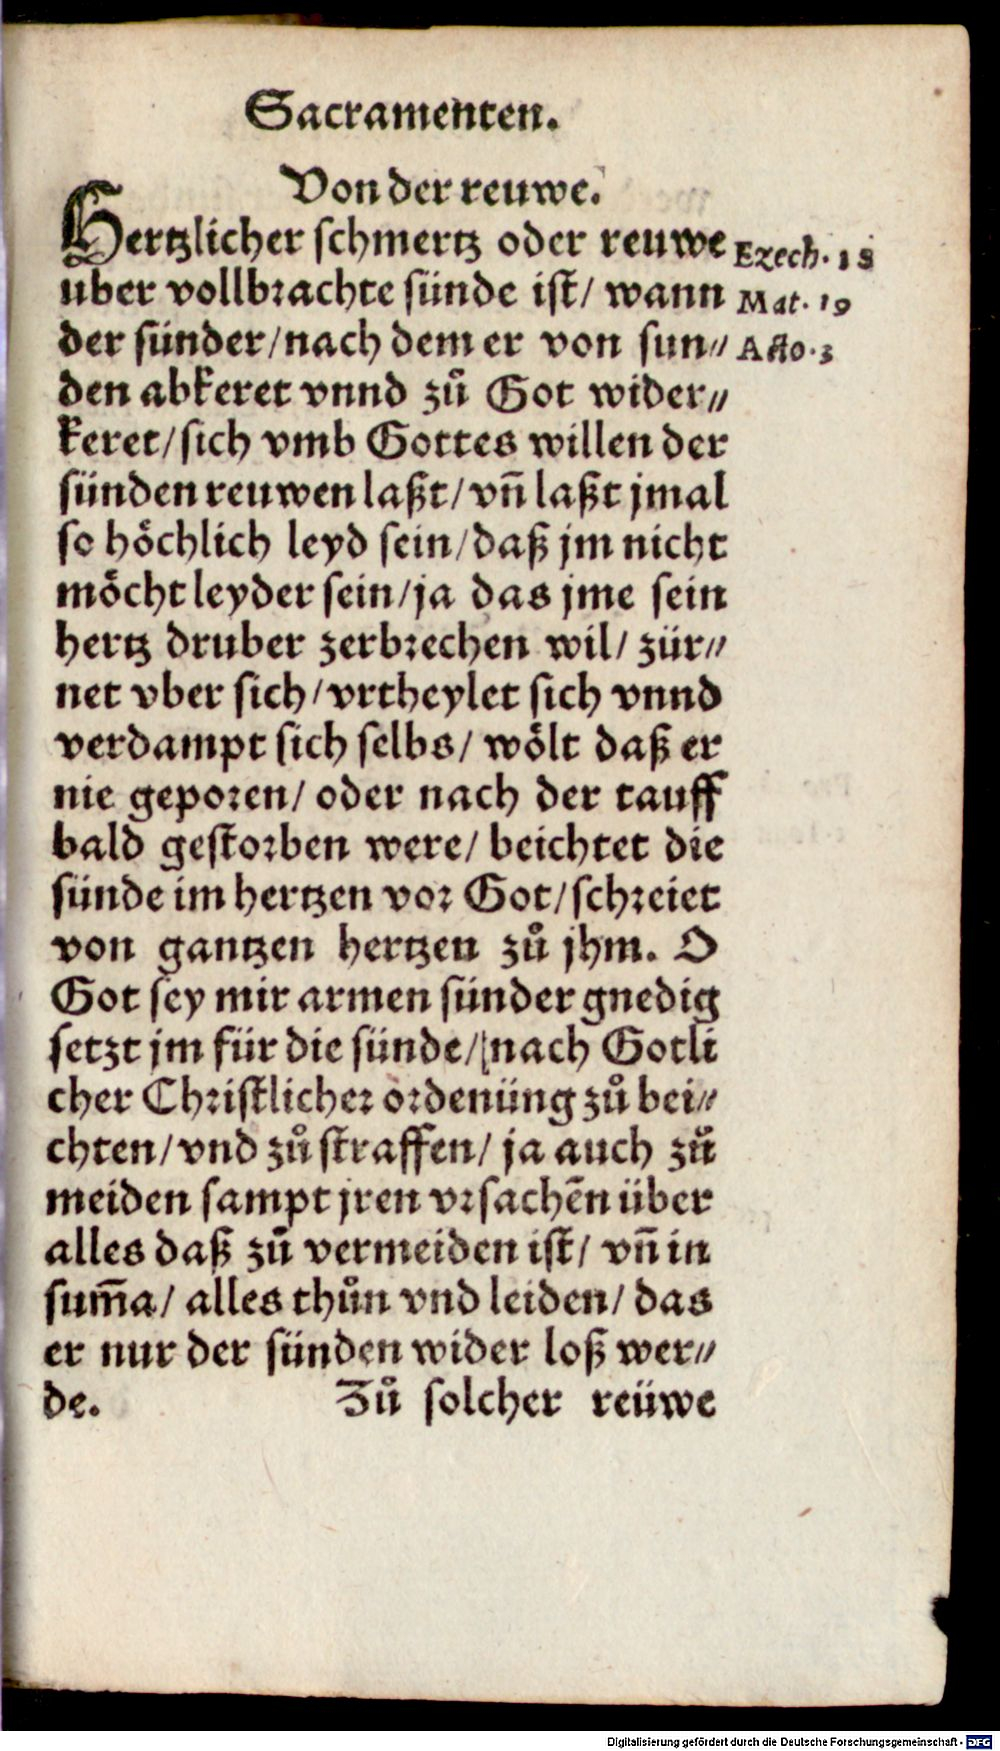 Sacramenten.
Von der reuwe.
Hertzlicher schmertz oder reuwe
uber vollbrachte sünde ist/ wann
der sünder/nach dem er von sun⸗
den abkeret vnnd zů Got wider⸗
keret/sich vmb Gottes willen der
sünden reuwen laßt/vn̄ laßt jmal
so höchlich leyd sein/daß jm nicht
möcht leyder sein/ja das jme sein
hertz druber zerbrechen wil/ zür⸗
net vber sich/vrtheylet sich vnnd
verdampt sich selbs/ wölt daß er
nie geporen/ oder nach der tauff
bald gestorben were/ beichtet die
sünde im hertzen vor Got/schreiet
von gantzen hertzen zů jhm. O
Got sey mir armen sünder gnedig
setzt jm für die sünde/nach Gotli
cher Christlicher ordenüng zů bei⸗
chten/vnd zů straffen/ ja auch zů
meiden sampt jren vrsachēn über
alles daß zů vermeiden ist/ vn̄ in
sum̄a/ alles thůn vnd leiden/ das
er nur der sünden wider loß wer⸗
de. Zů solcher reüwe
Ezech. 18
Mat. 19
Acto. 3
Digitalisierung gefördert durch die Deutsche Forschungsgemeinschaft - DFG